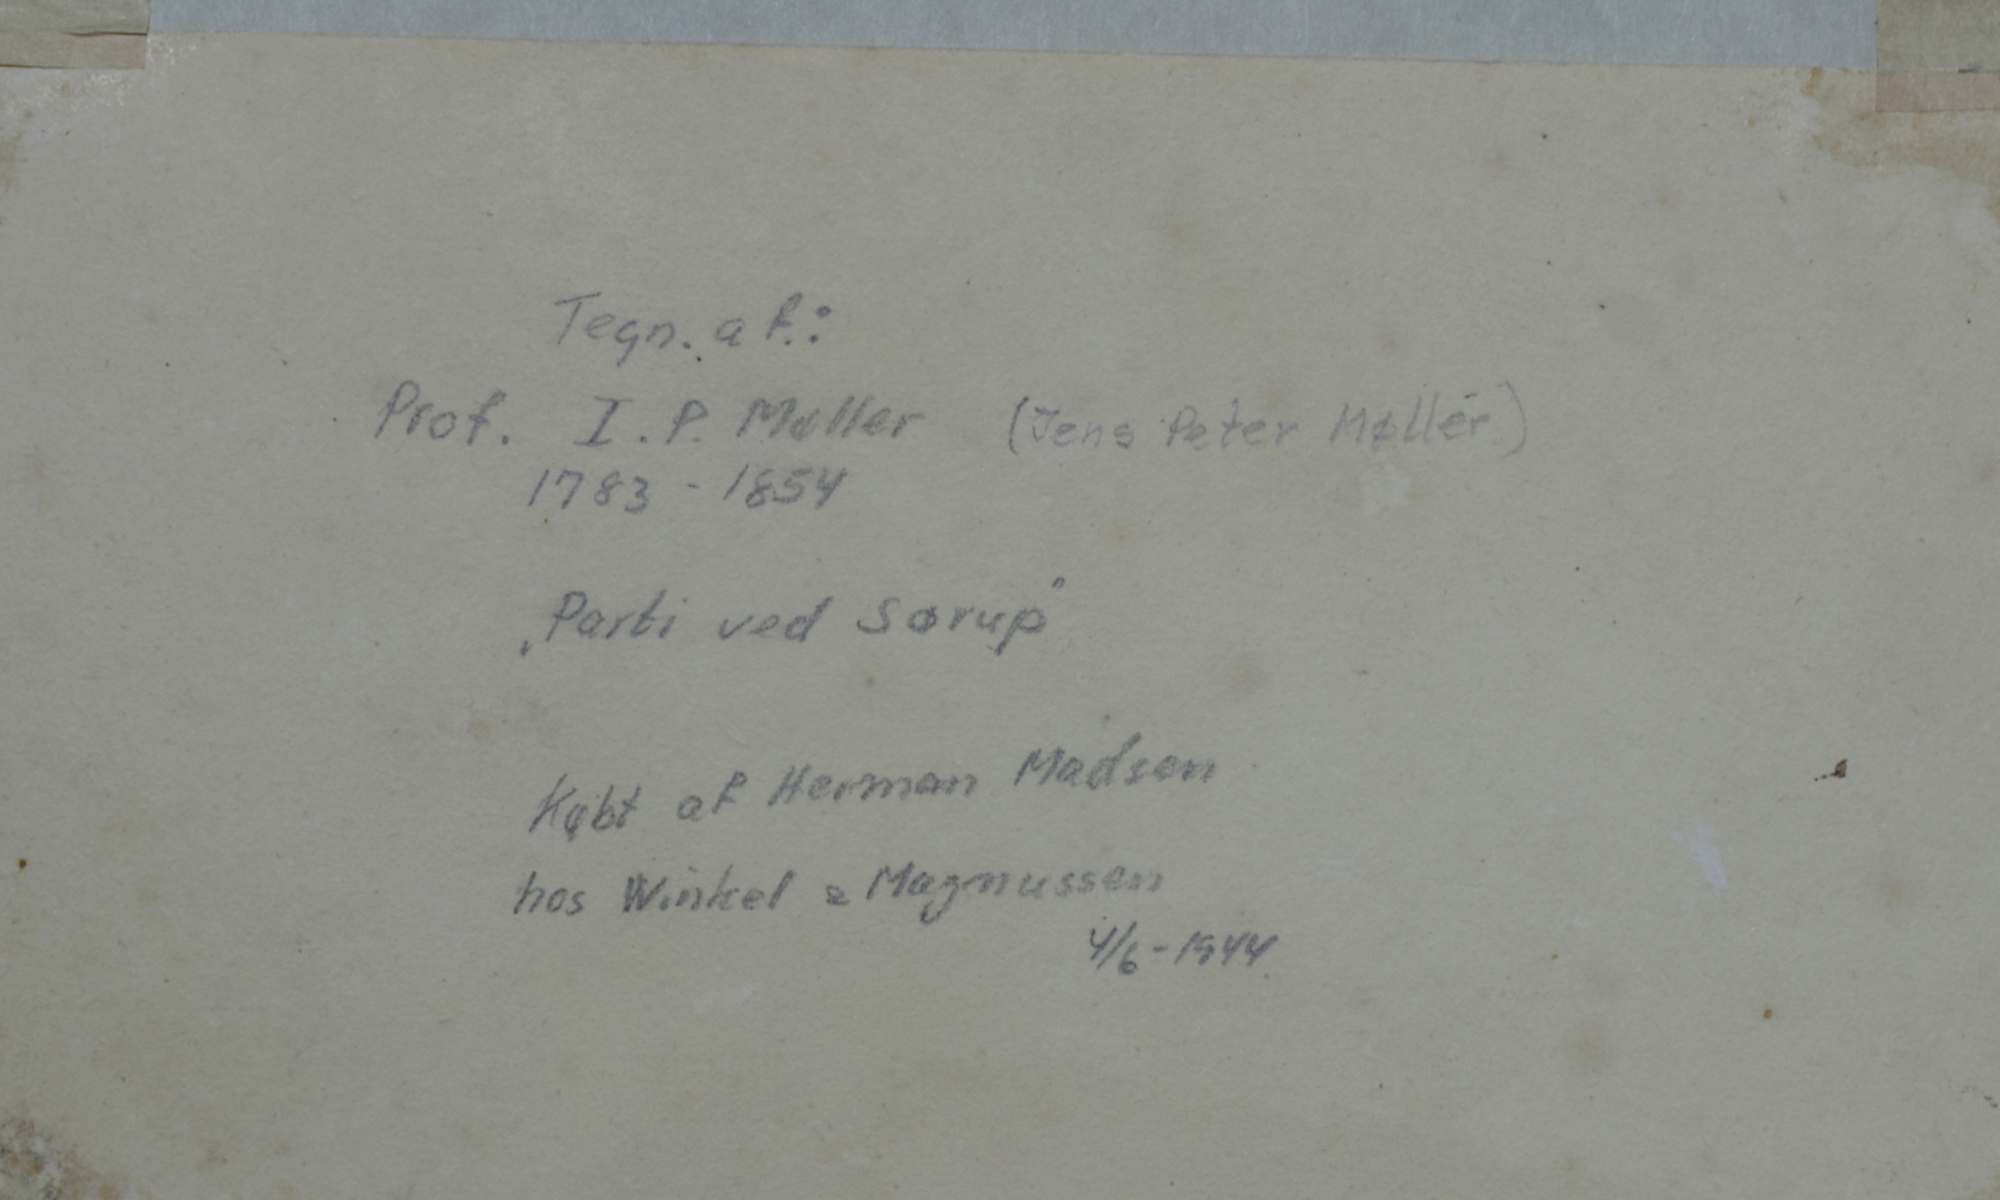 Tegn. af.:
Prof. I. P. Møller (Jens Peter Møller)
1783 - 1854
„Parti ved Sørup"
Købt af Herman Madsen
hos Winkel & Magnussen
4/6 - 1944